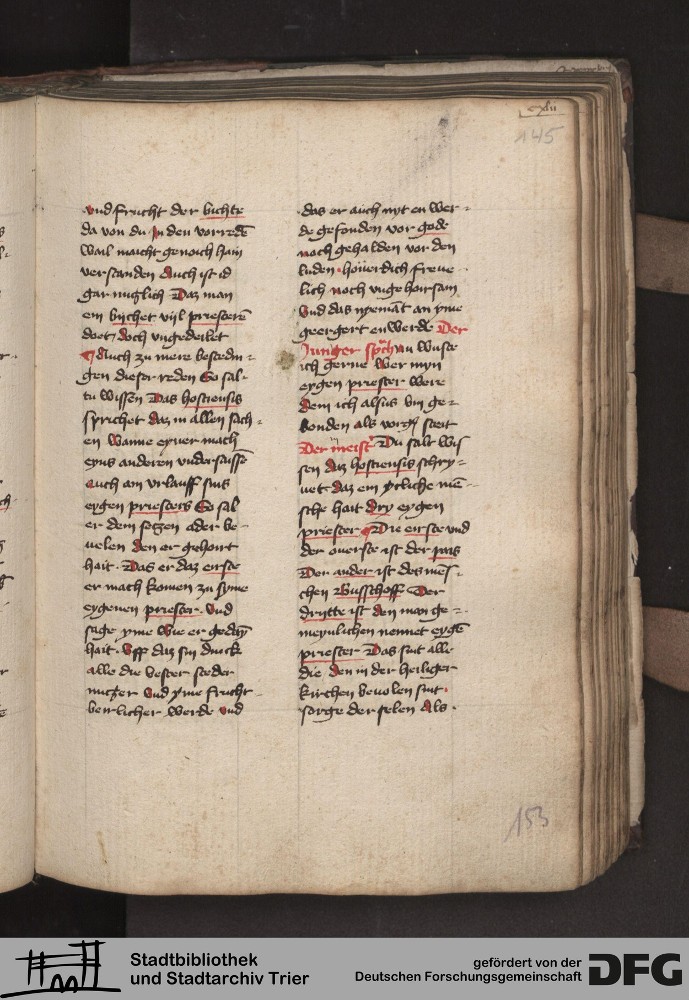 cxlii
145
vnd frucht der buchte
da von du in den vorredē
wail maicht genoich hain
verstanden Auch ist id
gar nutzlich Daz man
em bychet vijl priesterē
doet / doch vngedeilet
¶ Auch zu mere bestedin=
gen dieser reden So sal-
tu wissen Das hostiensis
sprichet daz in allen sach=
en wanne eyner mach
eyns anderen vndersaissē
Auch an vrlauff sins
eygen priesters So sal
er dem setzen ader be-
uelen den er gehoirt
hait. Das er daz eirste
er mach komen zu syme
eygenen priester. Vnd
sage yme wie er gedayn
hait. Vff daz sin dinck
alle die bester steder
nutzer Vnd yme frucht-
berlicher werde Vnd
das er auch nyt en wer=
de gefonden vor gode
noch gehalden vor den
luden. houerdich freue
lich noch vngehoirsam
Vnd das nyemāt an yme
geergert en werde Der
Junger sprich Nu wuste
ich gerne Wer myn
eygen priester were
Dem ich alsus bin ge=
bonden als vorgeschr steit
Der meister Du salt wis
sen daz hostiensis schry=
uet. daz ein ytliche mē-
sche hait dry eygen
priester ¶ Die eirste vnd
der ouerste ist der pais
Der ander ist des mēs-
chen Busschoff Der
drytte ist den man ge=
meynlichen nennet eygē
priester Das sint alle
die den in der heiliger
kirchen beuolen sint.
sorge der selen Als.
153
Stadtbibliothek
und Stadtarchiv Trier
gefördert von der
Deutschen Forschungsgemeinschaft
DFG